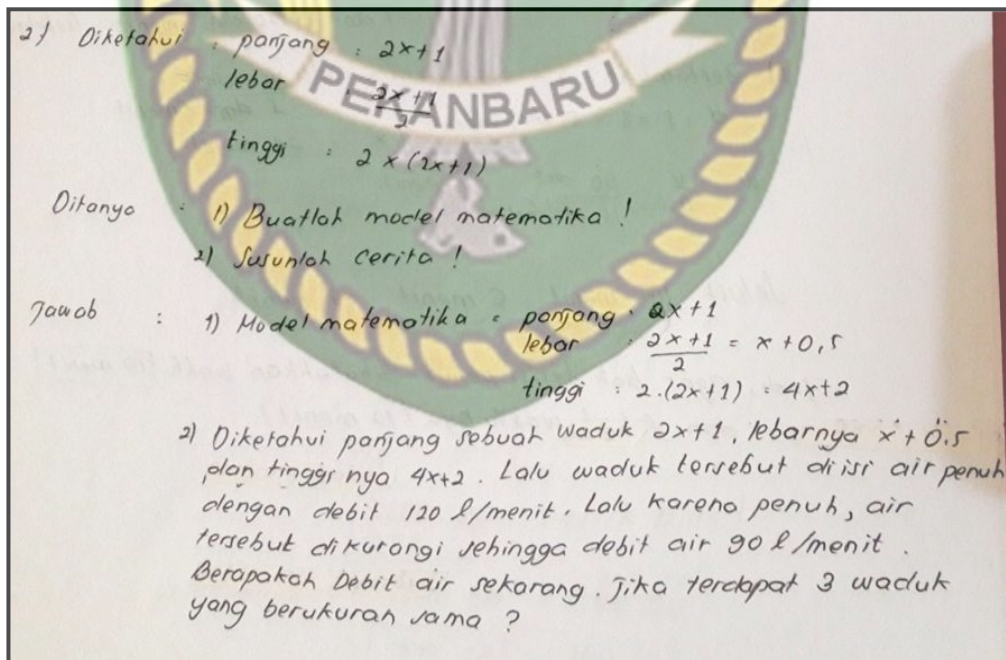 2) Diketahui : panjang : 2x+1
lebar : \frac{2x+1}{2}
PEKANBARU
tinggi : 2 x (2x+1)
Ditanya : 1) Buatlah model matematika !
2) Susunlah cerita !
Jawab : 1) Model matematika = panjang : 2x+1
lebar : \frac{2x+1}{2} = x+0,5
tinggi : 2.(2x+1) = 4x+2
2) Diketahui panjang sebuah waduk 2x+1, lebarnya x+0.5
dan tingginya 4x+2. Lalu waduk tersebut diisi air penuh
dengan debit 120 l/menit. Lalu karena penuh, air
tersebut dikurangi sehingga debit air 90 l/menit.
Berapakah Debit air sekarang. Jika terdapat 3 waduk
yang berukuran sama ?